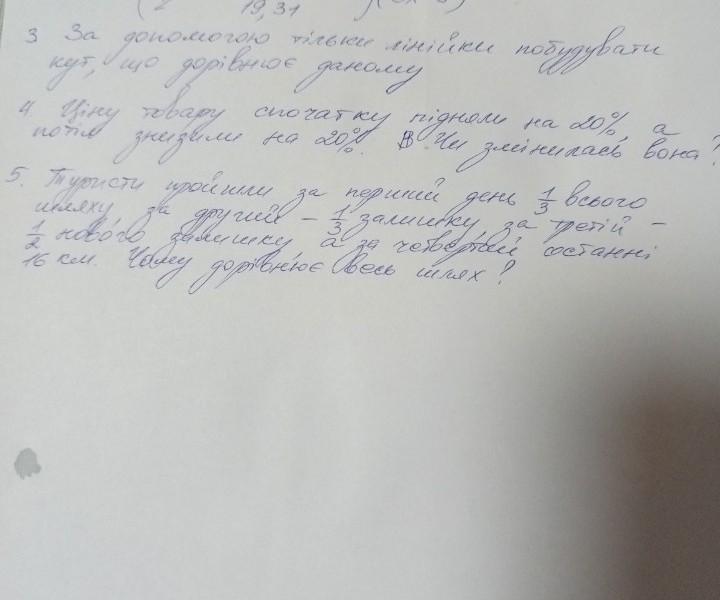 19,31
3 За допомогою тільки лінійки побудувати
кут, що дорівнює даному
4. Ціну товару спочатку підняли на 20%, а
потім знизили на 20%. Чи змінилась вона?
5. Туристи пройшли за перший день 1/3 всього
шляху, за другий – 1/3 залишку, за третій –
1/2 нового залишку, а за четвертий останні
16 км. Чому дорівнює весь шлях?